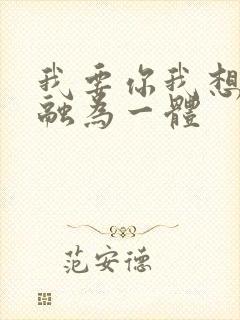 我要你我想
融為一體
范安德